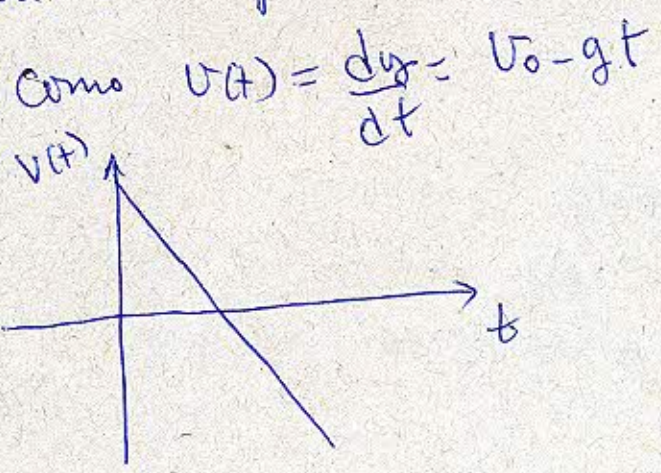 Como v(t) = dy/dt = v₀ - gt
v(t)
t